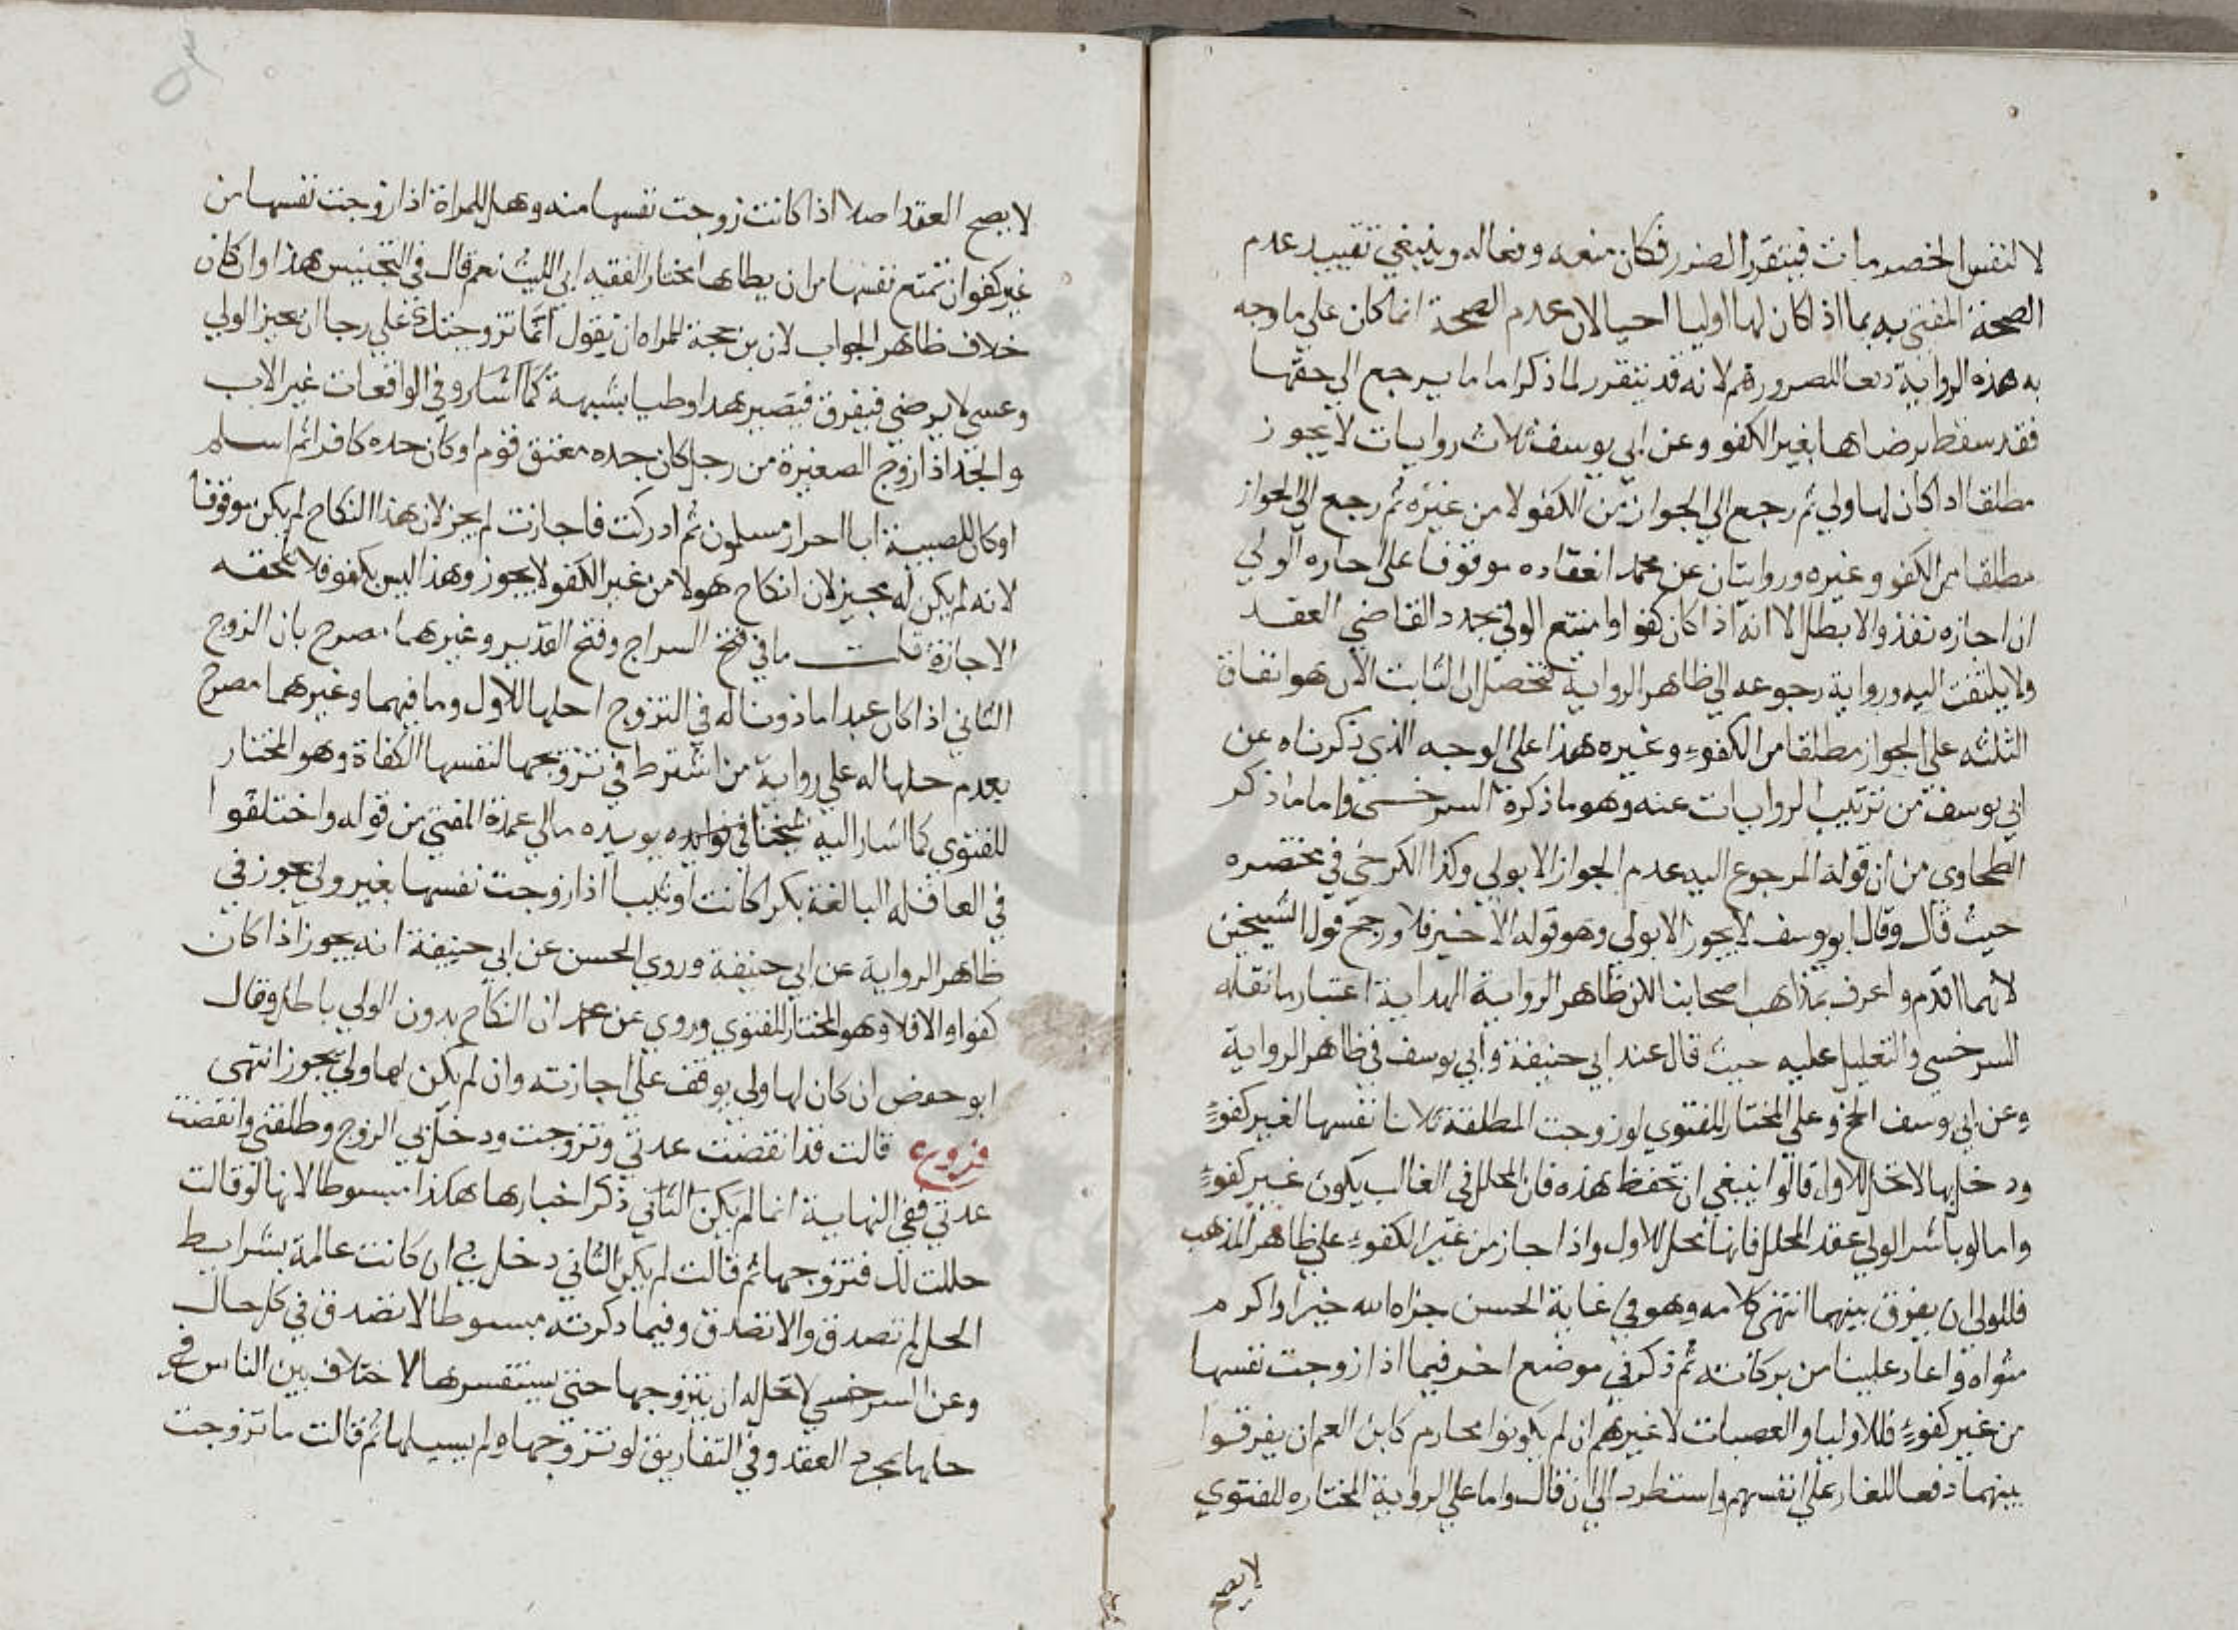 لا لنفس الخصومات فيتقرر الضرر فكان منعه دفعا له وينبغي تقييد عدم
الصحة المفتى به بما اذا كان لها اوليا احيا لان عدم الصحة انما كان على ما وجه
به هذه الرواية دفعا للضرر لانه قد يتقرر لما ذكر اما ما يرجع الى حقها
فقد سقط برضاها بغير الكفو وعن ابي يوسف ثلاث روايات لا يجوز
مطلقا اذا كان لها ولي ثم رجع الى الجواز من الكفو لا من غيره ثم رجع الى الجواز
مطلقا من الكفو وغيره وروايتان عن محمد انعقاده موقوفا على اجازه الولي
ان اجازه نفذ والا بطل الا انه اذا كان كفوا وامتنع الولي يجدد القاضي العقد
ولا يلتفت اليه ورواية رجوعه الى ظاهر الرواية فتحصل ان الثابت الان هو اتفاق
الثلثه على الجواز مطلقا من الكفوء وغيره هذا على الوجه الذي ذكرناه عن
ابي يوسف من ترتيب الروايات عنه وهو ما ذكره السرخسى واما ما ذكر
الطحاوي من ان قوله المرجوع اليه عدم الجواز الا بولي وكذا الكرخي في مختصره
حيث قال وقال ابو يوسف لا يجوز الا بولي وهو قوله الاخير فلا ورجح قول الشيخين
لانهما اقدم واعرف بمذاهب اصحابنا لكن ظاهر الرواية الهداية اعتبار ما نقله
السرخسي والتعليل عليه حيث قال عند ابي حنيفة وابي يوسف في ظاهر الرواية
وعن ابي يوسف الخ وعلى المختار للفتوي لو زوجت المطلقة ثلاثا نفسها لغير كفوءٍ
ودخل بها لا تحل للاول قالوا ينبغي ان تحفظ هذه فان المحلل في الغالب يكون غير كفوءٍ
واما لو باشر الولي عقد المحلل فانها تحل للاول واذا جاز من غير الكفوء على ظاهر المذهب
فللولي ان يفرق بينهما انتهى كلامه وهو في غاية الحسن جزاه الله خيرا واكرم
مثواه واعاد علينا من بركاته ثم ذكر في موضع اخر فيما اذا زوجت نفسها
من غير كفوءٍ فللاوليا والعصبات لا غيرهم ان لم يكونوا محارم كابن العم ان يفرقوا
بينهما دفعا للعار على انفسهم واستطرد الى ان قال واما على الرواية المختاره للفتوي
لا يصح
لا يصح العقد اصلا اذا كانت زوجت نفسها منه وهل للمراة اذا زوجت نفسها من
غير كفو ان تمنع نفسها من ان يطاها اختار الفقيه ابي الليث نعم قال في التجنيس هذا وان كان
خلاف ظاهر الجواب لان من حجة المراه ان تقول انما تزوجتك على رجا ان يجيز الولي
وعسى لا يرضى فيفرق فيصير هذا وطيا بشبهة كما اشار وفي الواقعات غير الاب
والجد اذا زوج الصغيرة من رجل كان جده معتق قوم او كان جده كافرا ثم اسلم
او كان للصبية ابا احرار مسلمون ثم ادركت فاجازت لم يجز لان هذا النكاح لم يكن موقوفا
لانه لم يكن له مجيز لان انكاح هولا من غير الكفو لا يجوز وهذا ليس بكفو فلا تلحقه
الاجازة قلت ما في فتح السراج وفتح القدير وغيرهما مصرح بان الزوج
الثاني اذا كان عبدا ماذونا له في التزوج احلها للاول وما فيهما وغيرهما مصرح
بعدم حلها له على رواية من اشترط في تزويجها لنفسها الكفاة وهو المختار
للفتوي كما اشار اليه شيخنا في فوايده يويده ما في عمدة المفتي من قوله واختلفوا
في العاقله البالغة بكرا كانت او ثيبا اذا زوجت نفسها بغير ولي يجوز في
ظاهر الرواية عن ابي حنيفة وروي الحسن عن ابي حنيفة انه يجوز اذا كان
كفوا والا فلا وهو المختار للفتوي وروي عن محمد ان النكاح بدون الولي باطل وقال
ابو حفص ان كان لها ولي يوقف على اجازته وان لم يكن لها ولي يجوز انتهى
فروع قالت قد انقضت عدتي وتزوجت ودخل بي الزوج وطلقني وانقضت
عدتي ففي النهاية انما لم يكن الثاني ذكر اخبارها هكذا مبسوطا لانها لو قالت
حللت لك فتزوجها ثم قالت لم يكن الثاني دخل بي ان كانت عالمة بشرايط
الحل لم تصدق والا تصدق وفيما ذكرته مبسوطا لا تصدق في كل حال
وعن السرخسي لا تحل له ان يتزوجها حتى يستفسرها لاختلاف بين الناس في
حلها بمجرد العقد وفي التفاريق لو تزوجها ولم يسيلها ثم قالت ما تزوجت